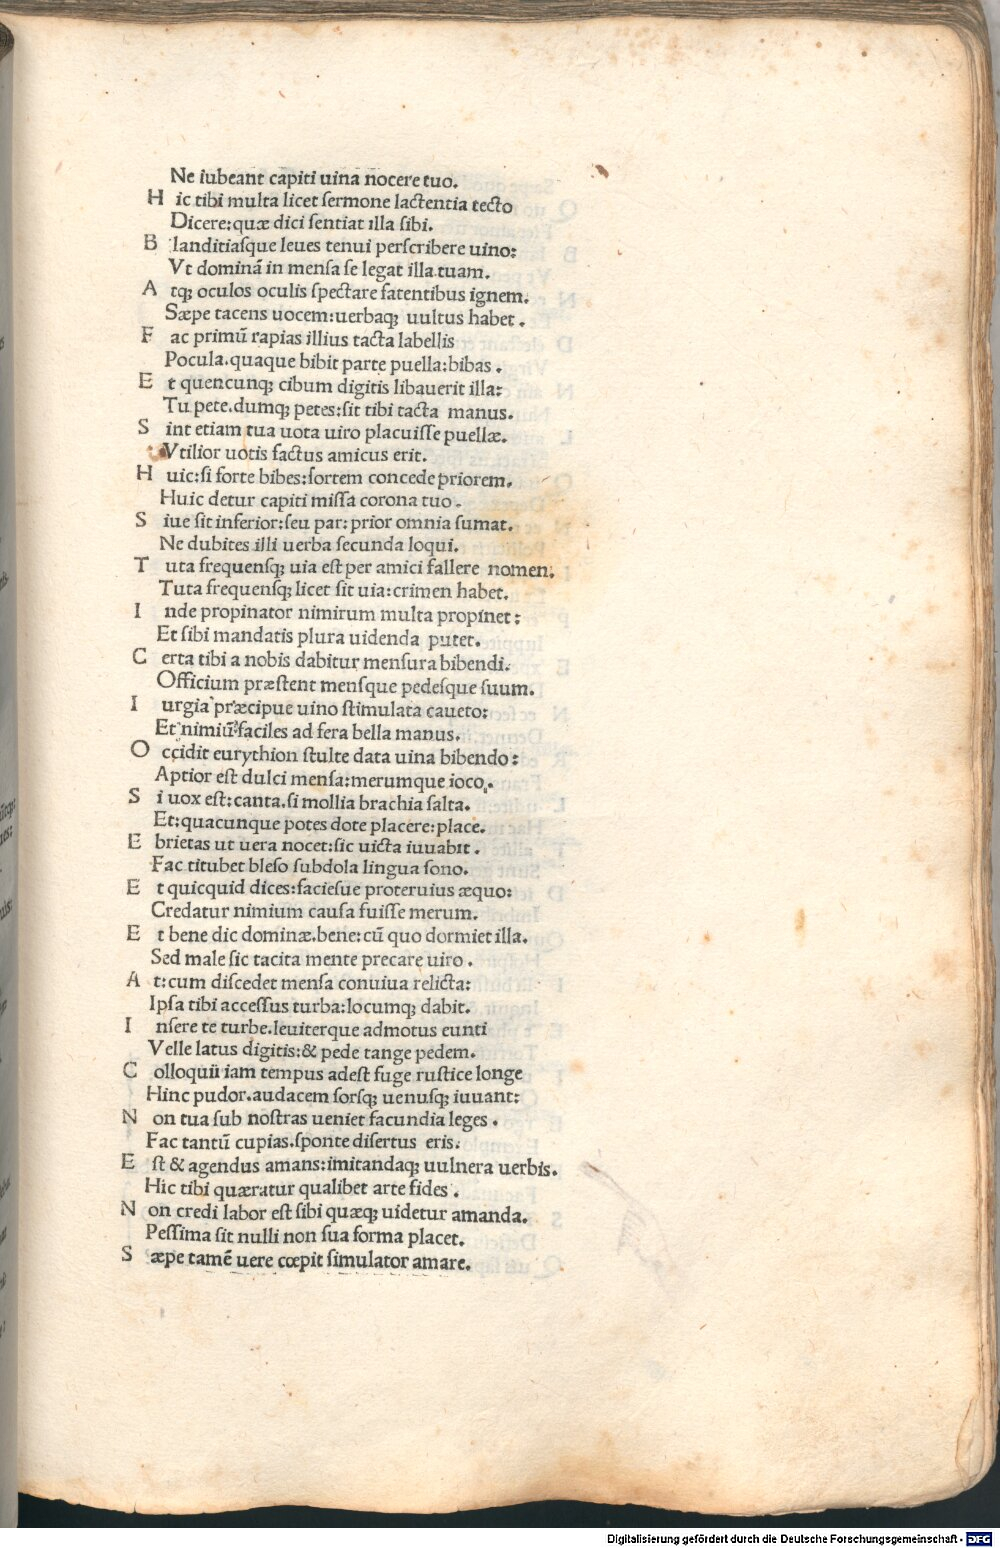 Ne iubeant capiti uina nocere tuo.
H ic tibi multa licet sermone lactentia tecto
Dicere:quæ dici sentiat illa sibi.
B landitiasque leues tenui perscribere uino:
Vt dominã in mensa se legat illa tuam.
A tq; oculos oculis spectare fatentibus ignem.
Sæpe tacens uocem:uerbaq; uultus habet.
F ac primũ rapias illius tacta labellis
Pocula.quaque bibit parte puella:bibas.
E t quencunq; cibum digitis libauerit illa:
Tu pete.dumq; petes:sit tibi tacta manus.
S int etiam tua uota uiro placuisse puellæ.
Vtilior uotis factus amicus erit.
H uic:si forte bibes:sortem concede priorem.
Huic detur capiti missa corona tuo.
S iue sit inferior:seu par:prior omnia sumat.
Ne dubites illi uerba secunda loqui.
T uta frequensq; uia est per amici fallere nomen.
Tuta frequensq; licet sit uia:crimen habet.
I nde propinator nimirum multa propinet:
Et sibi mandatis plura uidenda putet.
C erta tibi a nobis dabitur mensura bibendi.
Officium præstent mensque pedesque suum.
I urgia præcipue uino stimulata caueto:
Et nimiũ faciles ad fera bella manus.
O ccidit eurythion stulte data uina bibendo:
Aptior est dulci mensa:merumque ioco.
S i uox est:canta.si mollia brachia salta.
Et:quacunque potes dote placere:place.
E brietas ut uera nocet:sic uicta iuuabit.
Fac titubet bleso subdola lingua sono.
E t quicquid dices:faciesue proteruius æquo:
Credatur nimium causa fuisse merum.
E t bene dic dominæ.bene:cũ quo dormiet illa.
Sed male sic tacita mente precare uiro.
A t:cum discedet mensa conuiua relicta:
Ipsa tibi accessus turba:locumq; dabit.
I nsere te turbe.leuiterque admotus eunti
Velle latus digitis:& pede tange pedem.
C olloquii iam tempus adest fuge rustice longe
Hinc pudor.audacem forsq; uenusq; iuuant:
N on tua sub nostras ueniet facundia leges.
Fac tantũ cupias.sponte disertus eris.
E st & agendus amans:imitandaq; uulnera uerbis.
Hic tibi quæratur qualibet arte fides.
N on credi labor est sibi quæq; uidetur amanda.
Pessima sit nulli non sua forma placet.
S æpe tamẽ uere cœpit simulator amare.
Digitalisierung gefördert durch die Deutsche Forschungsgemeinschaft - DFG